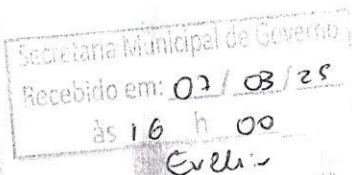 Secretaria Municipal de Governo
Recebido em: 07/ 03/25
às 16 h 00